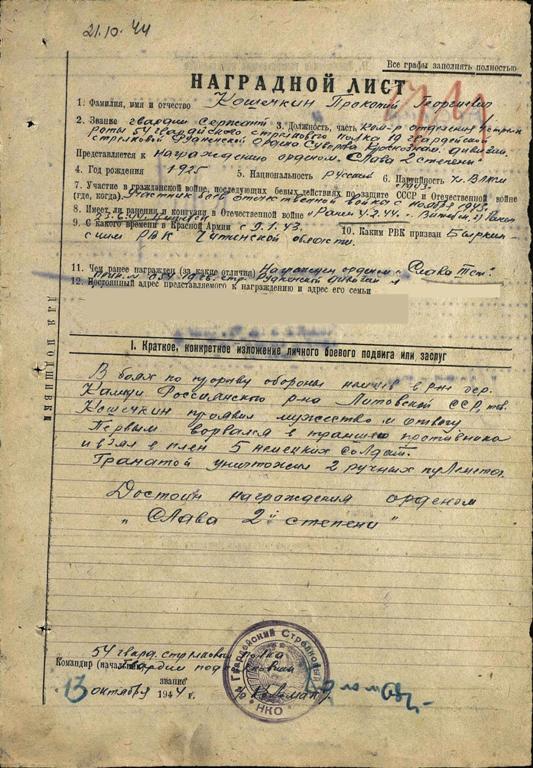 21.10.44
Все графы заполнять полностью
НАГРАДНОЙ ЛИСТ
1. Фамилия, имя и отчество Кошечкин Прокопий Георгиевич
2. Звание гвардии сержант 3. Должность, часть Ком-р отделения
роты 54 гвардейского стрелкового полка 19 гвардейской
стрелковой Рудненской ордена Суворова Краснознам. дивизии
Представляется к награждению орденом „Слава 2 степени"
4. Год рождения 1925 5. Национальность Русский 6. Партийность ВЛКСМ
1943
7. Участие в гражданской войне, последующих боевых действиях по защите СССР и Отечественной войне
(где, когда) Участник отечественной войны с 1943
8. Имеет ли ранения и контузии в Отечественной войне Ранен 4.2.44
23.6.44
9. С какого времени в Красной Армии с 9.1.43 10. Каким РВК призван
РВК Читинской области
11. Чем ранее награжден (за какие отличия) Награжден орденом „Слава
дивизии
12. Постоянный адрес представляемого к награждению и адрес его семьи
для подшивки
I. Краткое, конкретное изложение личного боевого подвига или заслуг
В боях по прорыву обороны немцев в р-не дер.
Россиенского р-на Литовской ССР тов.
Кошечкин проявил мужество и отвагу
Первым ворвался в траншею противника
и взял в плен 5 немецких солдат.
Гранатой уничтожил 2 ручных пулемета.
Достоин награждения орденом
„Слава 2й степени"
54 гвард. стрелкового полка
Командир (начальник) гвардии подполковник
звание
13 октября 1944 г.
Гвардейский Стрелковый
НКО